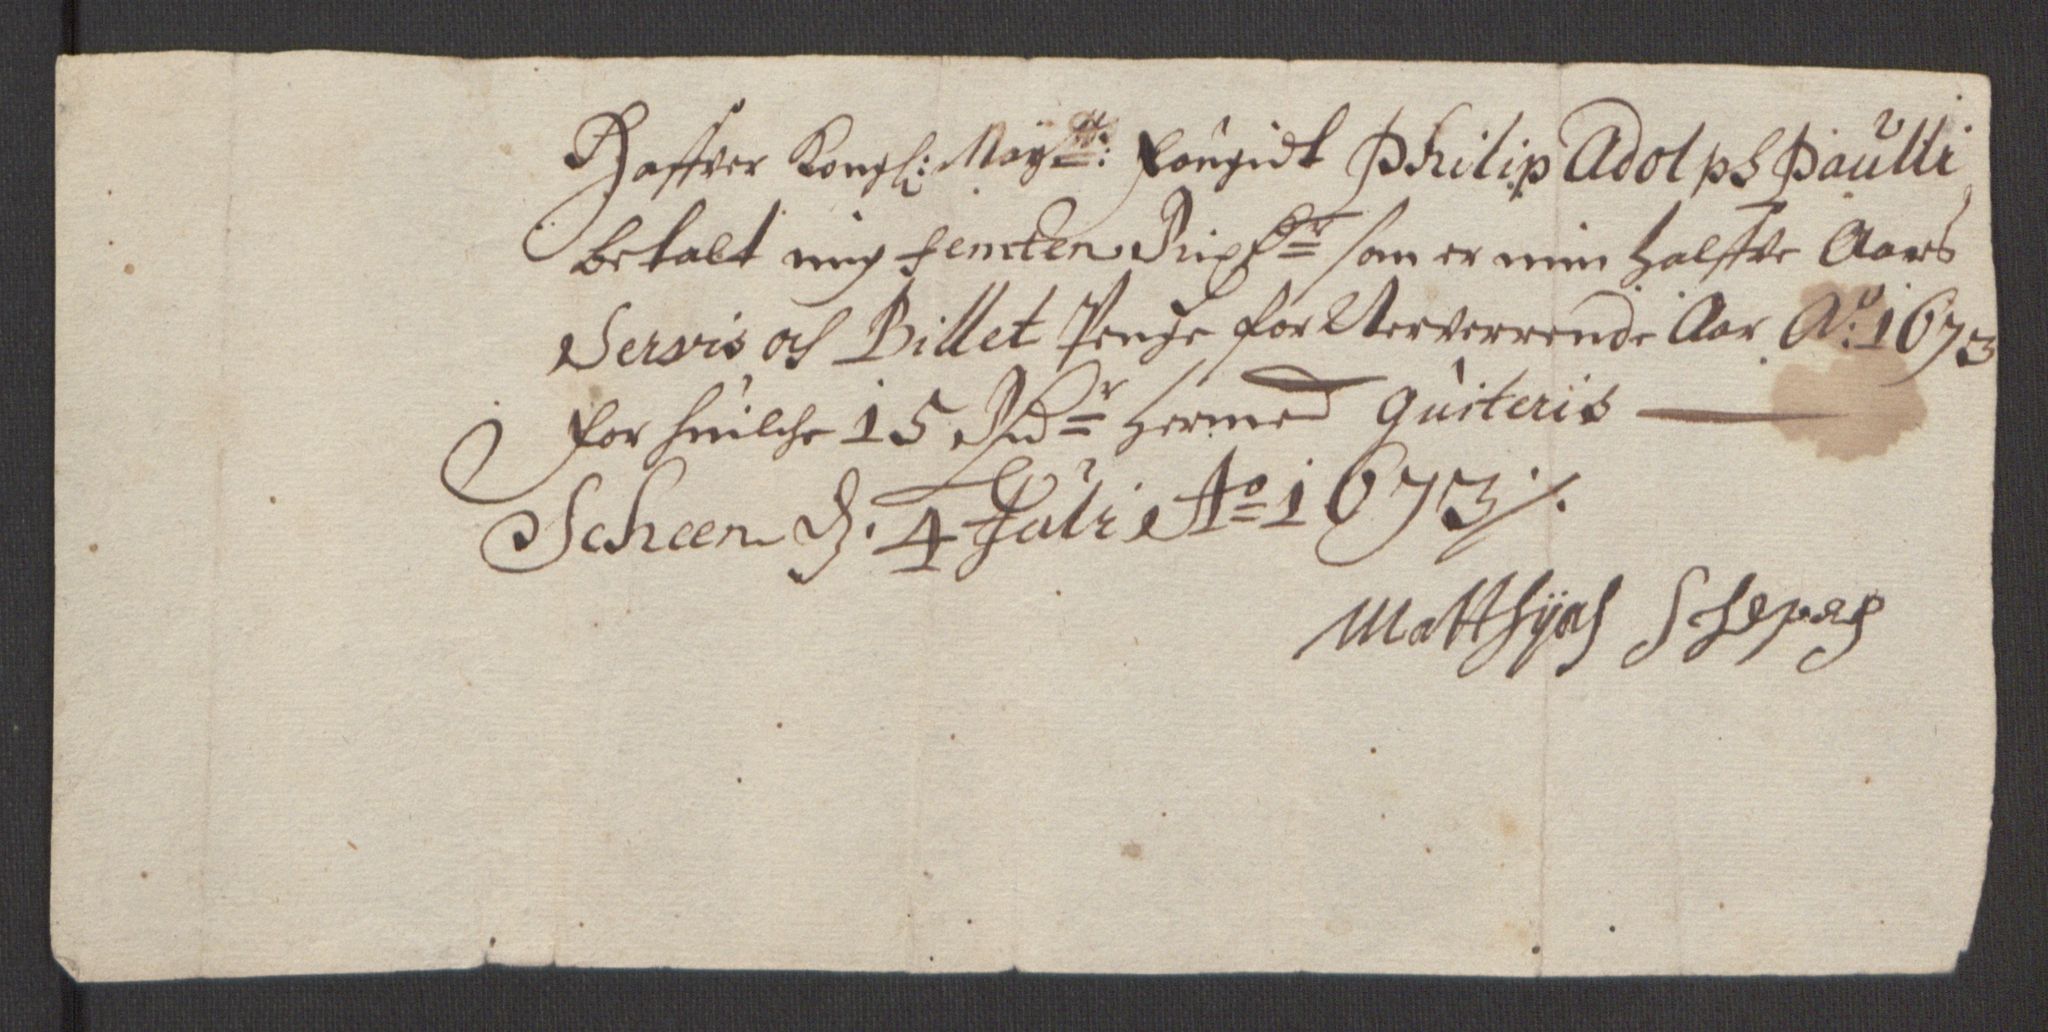 Haffver Kongl: Mayts: fougidt Philip Adolph Paulli
betalt mig femten Rixdr som er min halffve Aars
Servis och Billet Penge for Nerverrende Aar Ao: 1673
for huilche 15 Rdr hermed quiteris
Scheen d. 4 Juli Ao 1673 /.
Matthyas